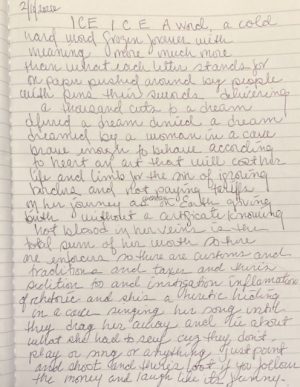 2/1/2026
ICE I.C.E. A word, a cold
hard word frozen forever with
meaning more much more
than what each letter stands for
on paper pushed around by people
with pens their swords delivering
a thousand cuts to a dream
deferred a dream denied a dream
dreamed by a woman in a cave
brave enough to behave according
to heart an art that will cost her
life and limb for the sin of ignoring
borders and not paying tariffs
on her journey as Earth giving
birth without a certificate knowing
not blood in her veins is the
total sum of her worth so here
are enforcers so there are customs and
traditions and taxes and there's
sedition to and invitation inflammation
of rhetoric and she's a heretic hiding
in a cave singing her song until
they drag her away and lie about
what she had to say cuz they don't
play or sing or anything just point
and shoot and there's loot if you follow
the money and laugh like its funny